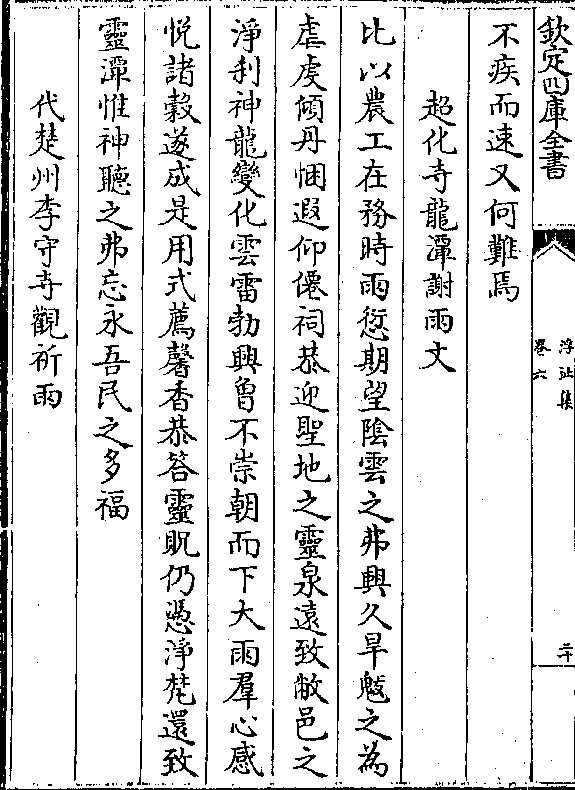 欽定四庫全書
浮沚集
卷六
二十
不疾而速又何難焉
超化寺龍潭謝雨文
比以農工在務時雨愆期望陰雲之弗興久旱魃之為
虐虔傾丹悃遐仰僊祠恭迎聖地之靈泉遠致敝邑之
淨刹神龍變化雲雷勃興曾不崇朝而下大雨羣心感
悅諸穀遂成是用式薦馨香恭答靈貺仍慿淨梵還致
靈潭惟神聽之弗忘永吾民之多福
代楚州李守寺觀祈雨